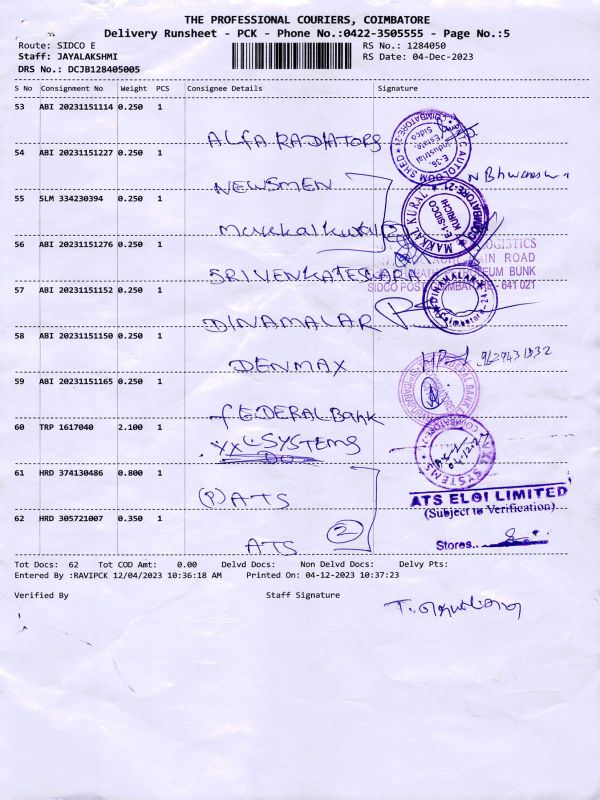 THE PROFESSIONAL COURIERS, COIMBATORE
Delivery Runsheet - PCK - Phone No.:0422-3505555 - Page No.:5
Route: SIDCO E RS No.: 1284050
Staff: JAYALAKSHMI RS Date: 04-Dec-2023
DRS No.: DCJB128405005
S No Consignment No Weight PCS Consignee Details Signature
53 ABI 20231151114 0.250 1
ALFA RADIATORS
54 ABI 20231151227 0.250 1
NEWSMEN
55 SLM 334230394 0.250 1
Makkal kural 2
56 ABI 20231151276 0.250 1
SRI VENKATESWARA
57 ABI 20231151152 0.250 1
DINAMALAR
58 ABI 20231151150 0.250 1
DENMAX
59 ABI 20231151165 0.250 1
FEDERAL BANK
60 TRP 1617040 2.100 1
SYSTEMS
61 HRD 374130486 0.800 1
(P) ATS
62 HRD 305721007 0.350 1
ATS 2
AUTOLOOM SHED
E-36,
Industrial
Estate,
Sidco
MAKKAL KURAL
E-1-SIDCO
KURICHI
LOGISTICS
MAIN ROAD
BUNK
SIDCO POST, COIMBATORE - 641 021
DINAMALAR
Coimbatore-24
FEDERAL BANK
XL SYSTEMS
ATS ELGI LIMITED
(Subject to Verification)
Stores..
Tot Docs: 62 Tot COD Amt: 0.00 Delvd Docs: Non Delvd Docs: Delvy Pts:
Entered By :RAVIPCK 12/04/2023 10:36:18 AM Printed On: 04-12-2023 10:37:23
Verified By Staff Signature